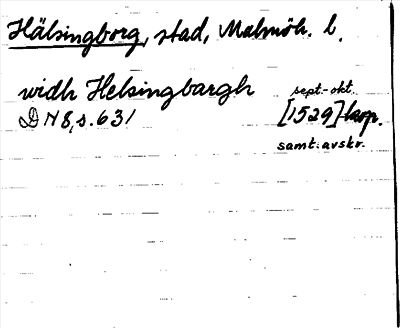 Hälsingborg, stad, Malmöh. l.
widh Helsingbargh sept.-okt.
DN 8, s. 631 [1529] kop.
samt. avskr.